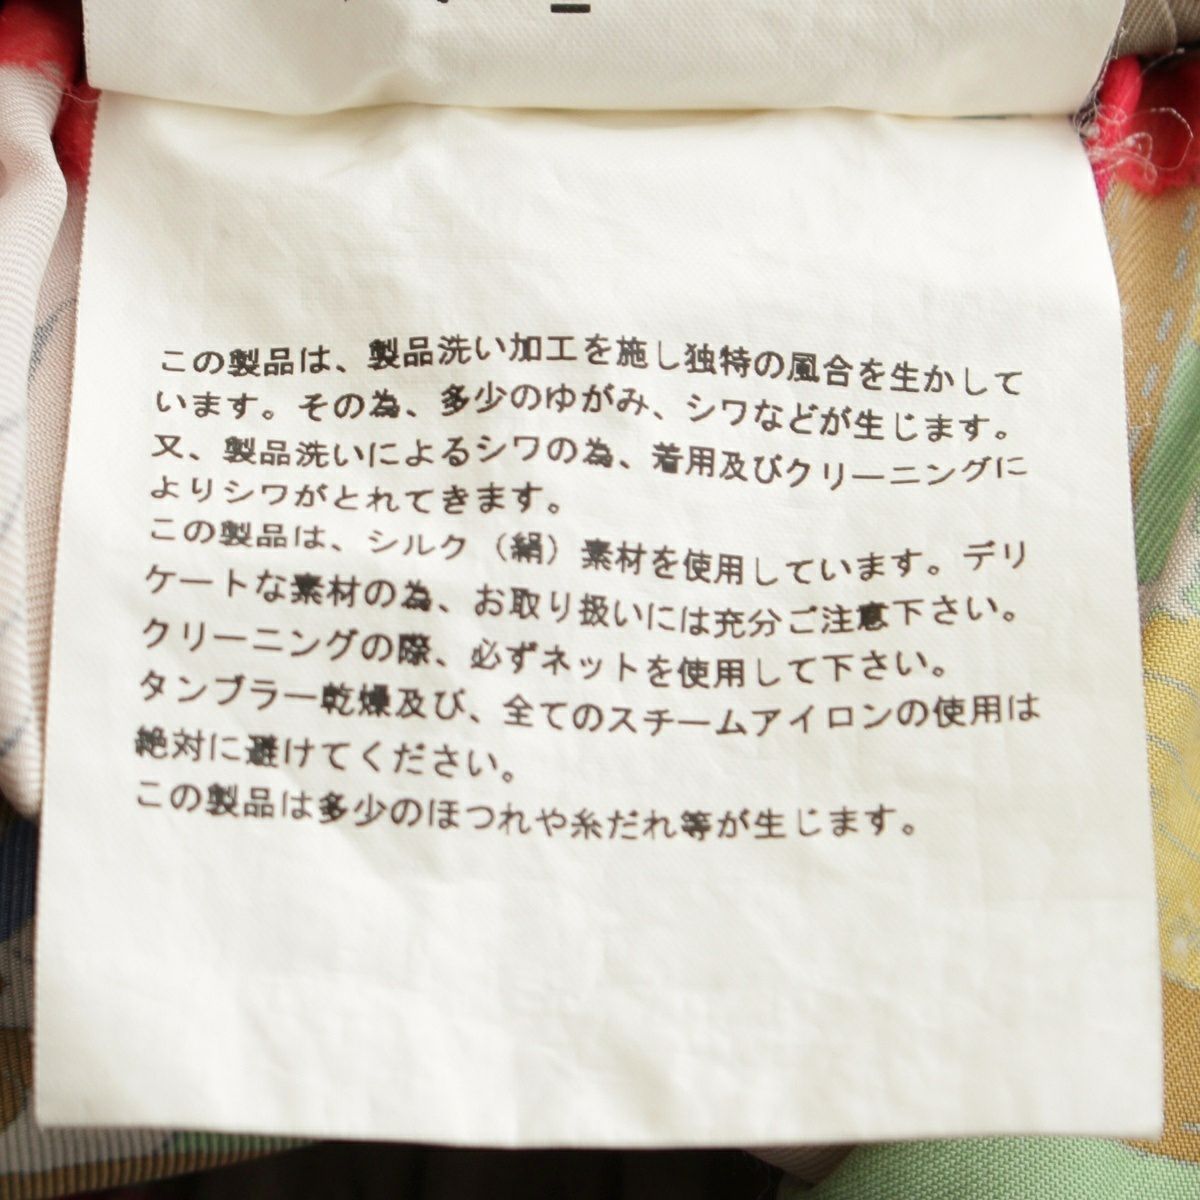 この製品は、製品洗い加工を施し独特の風合を生かして
います。その為、多少のゆがみ、シワなどが生じます。
又、製品洗いによるシワの為、着用及びクリーニングに
よりシワがとれてきます。
この製品は、シルク（絹）素材を使用しています。デリ
ケートな素材の為、お取り扱いには充分ご注意下さい。
クリーニングの際、必ずネットを使用して下さい。
タンブラー乾燥及び、全てのスチームアイロンの使用は
絶対に避けてください。
この製品は多少のほつれや糸だれ等が生じます。